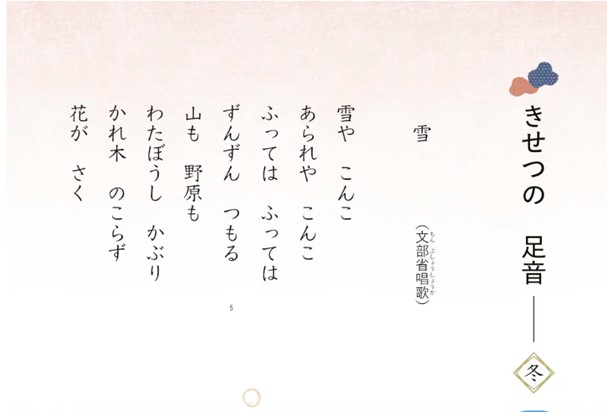 きせつの 足音──冬
雪
(文部省唱歌)
もんぶしょうしょうか
雪や こんこ
あられや こんこ
ふっては ふっては
ずんずん つもる
5
山も 野原も
わたぼうし かぶり
かれ木 のこらず
花が さく